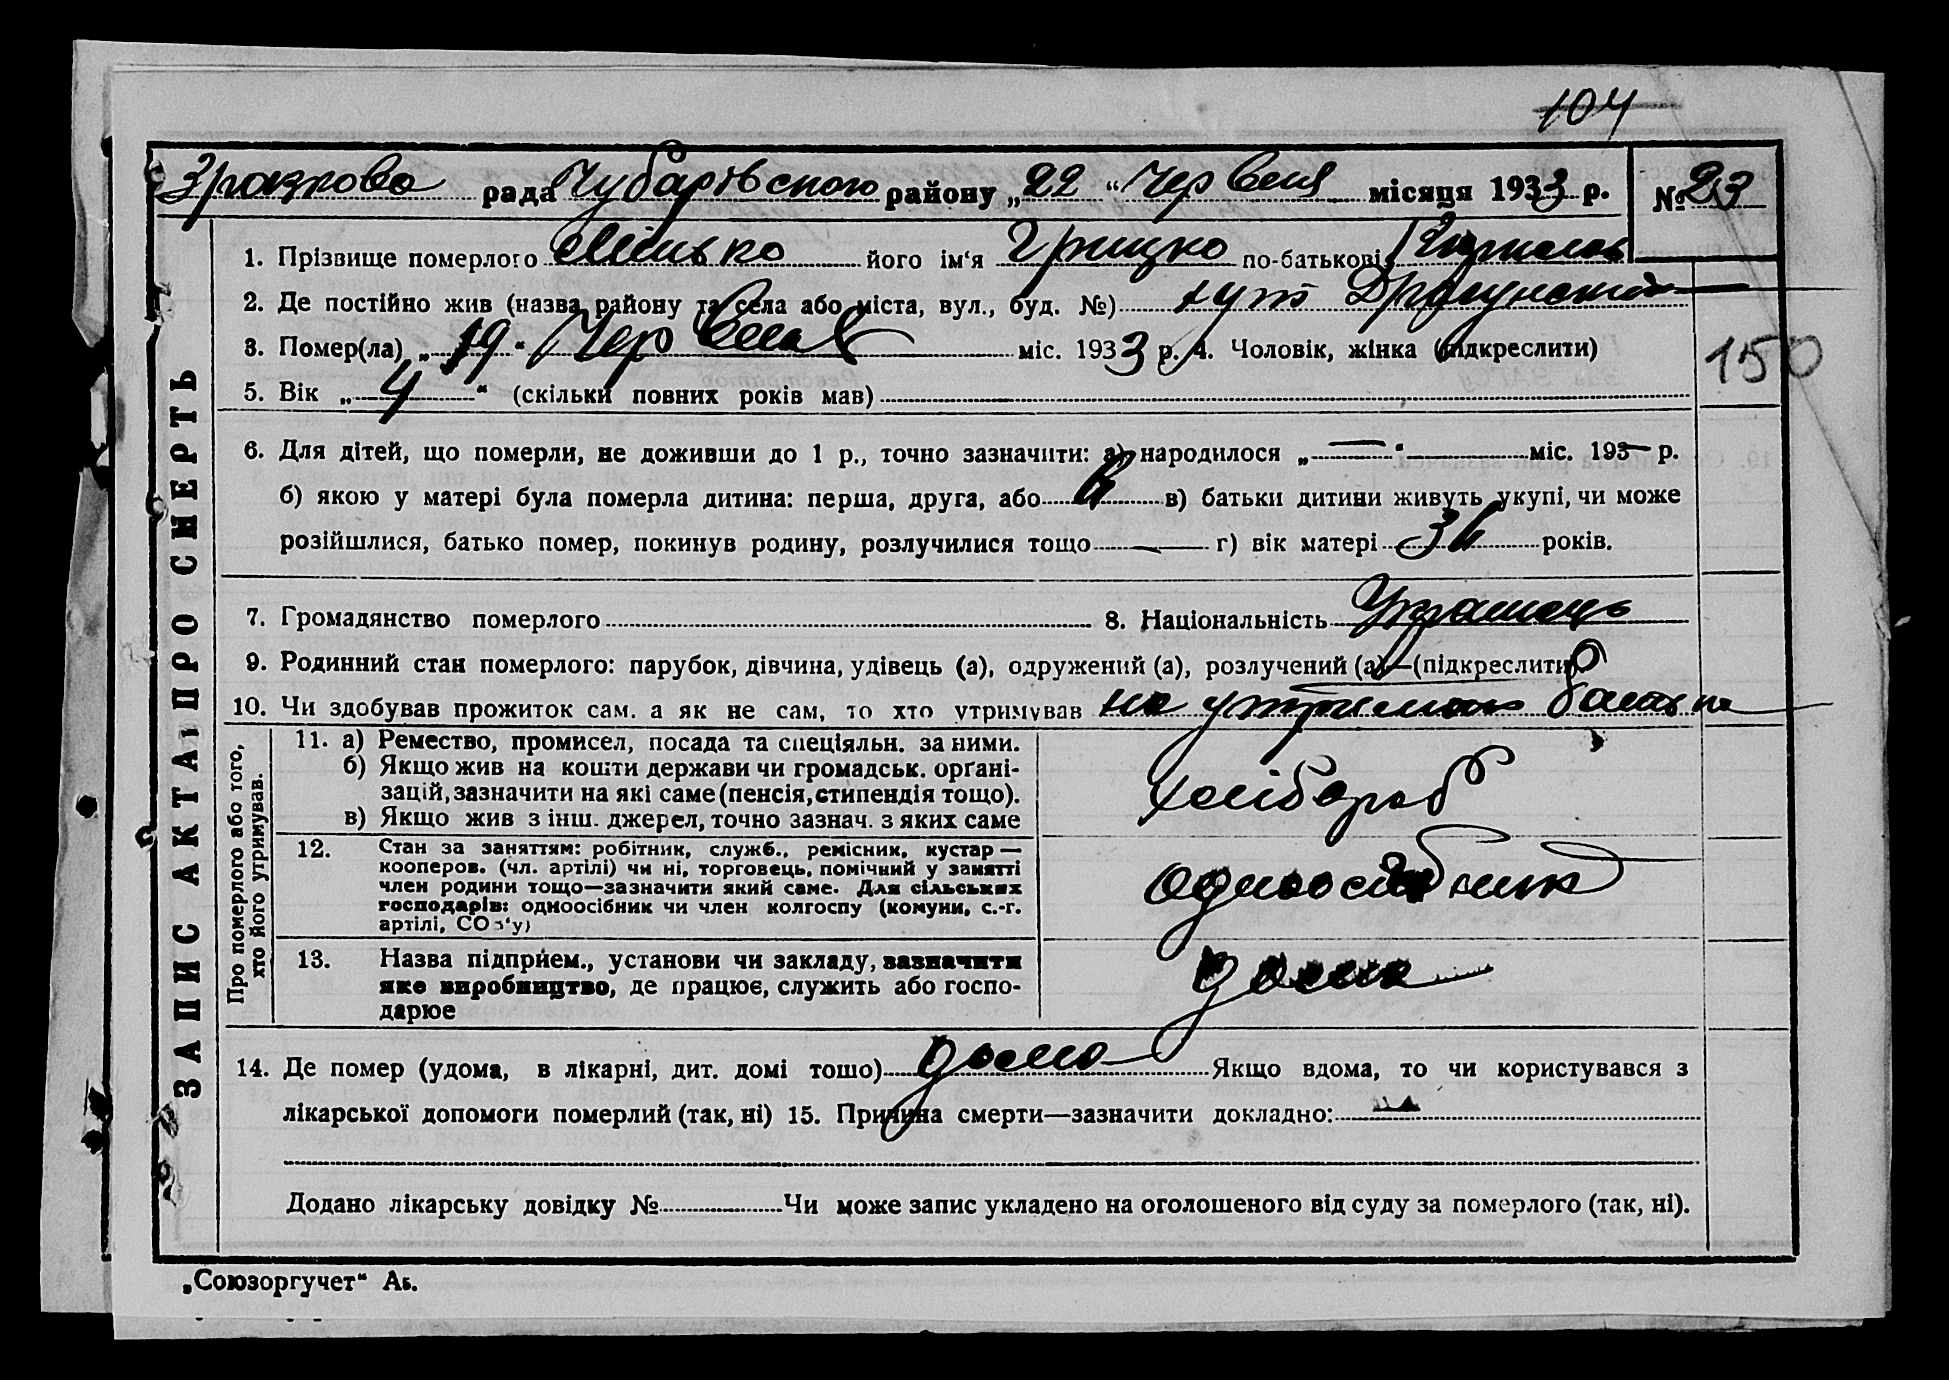 104
Зразкова рада Чубарівского району „22“ Червня місяця 1933 р. № 23
ЗАПИС АКТА ПРО СМЕРТЬ
1. Прізвище померлого Мілько його ім‘я Грицко по-батькові
2. Де постійно жив (назва району та села або міста, вул., буд. №) хут Драгунский
3. Помер(ла) „19“ Червня міс. 1933 р. 4. Чоловік, жінка (підкреслити)
150
5. Вік „4“ (скільки повних років мав)
6. Для дітей, що померли, не доживши до 1 р., точно зазначити: а) народилося „—“ — міс. 193— р.
б) якою у матері була померла дитина: перша, друга, або в) батьки дитини живуть укупі, чи може
розійшлися, батько помер, покинув родину, розлучилися тощо — г) вік матері років.
7. Громадянство померлого 8. Національність Украинець
9. Родинний стан померлого: парубок, дівчина, удівець (а), одружений (а), розлучений (а)—(підкреслити)
10. Чи здобував прожиток сам, а як не сам, то хто утримував на утриманю батька
Про померлого або того, хто його утримував.
11. а) Ремество, промисел, посада та спеціяльн. за ними.
б) Якщо жив на кошти держави чи громадськ. орґані-
зацій, зазначити на які саме (пенсія, стипендія тощо).
в) Якщо жив з інш. джерел, точно зазнач. з яких саме
хлібороб
12. Стан за заняттям: робітник, служб., ремісник, кустар —
кооперов. (чл. артілі) чи ні, торговець, помічний у занятті
член родини тощо—зазначити який саме. Для сільських
господарів: одноосібник чи член колгоспу (комуни, с.-г.
артілі, СОЗ‘у)
одноосібник
13. Назва підприєм., установи чи закладу, зазначити
яке виробництво, де працює, служить або госпо-
дарює
дома
14. Де помер (удома, в лікарні, дит. домі тощо) дома Якщо вдома, то чи користувався з
лікарської допомоги померлий (так, ні) 15. Причина смерти—зазначити докладно:
Додано лікарську довідку № Чи може запис укладено на оголошеного від суду за померлого (так, ні).
„Союзоргучет“ Аб.